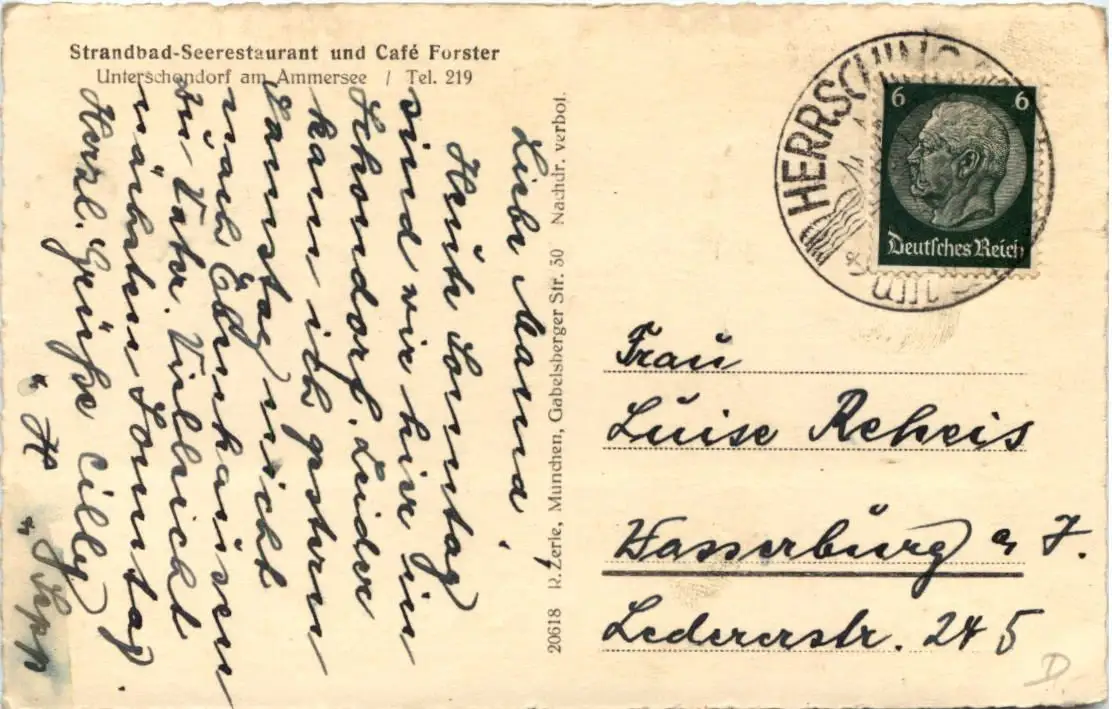 Strandbad-Seerestaurant und Café Forster
Unterschondorf am Ammersee / Tel. 219
Liebe Mama!
Heute Sonntag
sind wir hier in
Schondorf. Leider
kam ich gestern
Samstag nicht
nach
zu Vater. Vielleicht
nächsten Sonntag.
Herzl. Grüße Cilly
" H
" Sepp
20618 R. Zerle, München, Gabelsberger Str. 30 Nachdr. verbot.
HERRSCHING
6 6
Deutsches Reich
Frau
Luise Reheis
Wasserburg a J.
Ledererstr. 245
D.